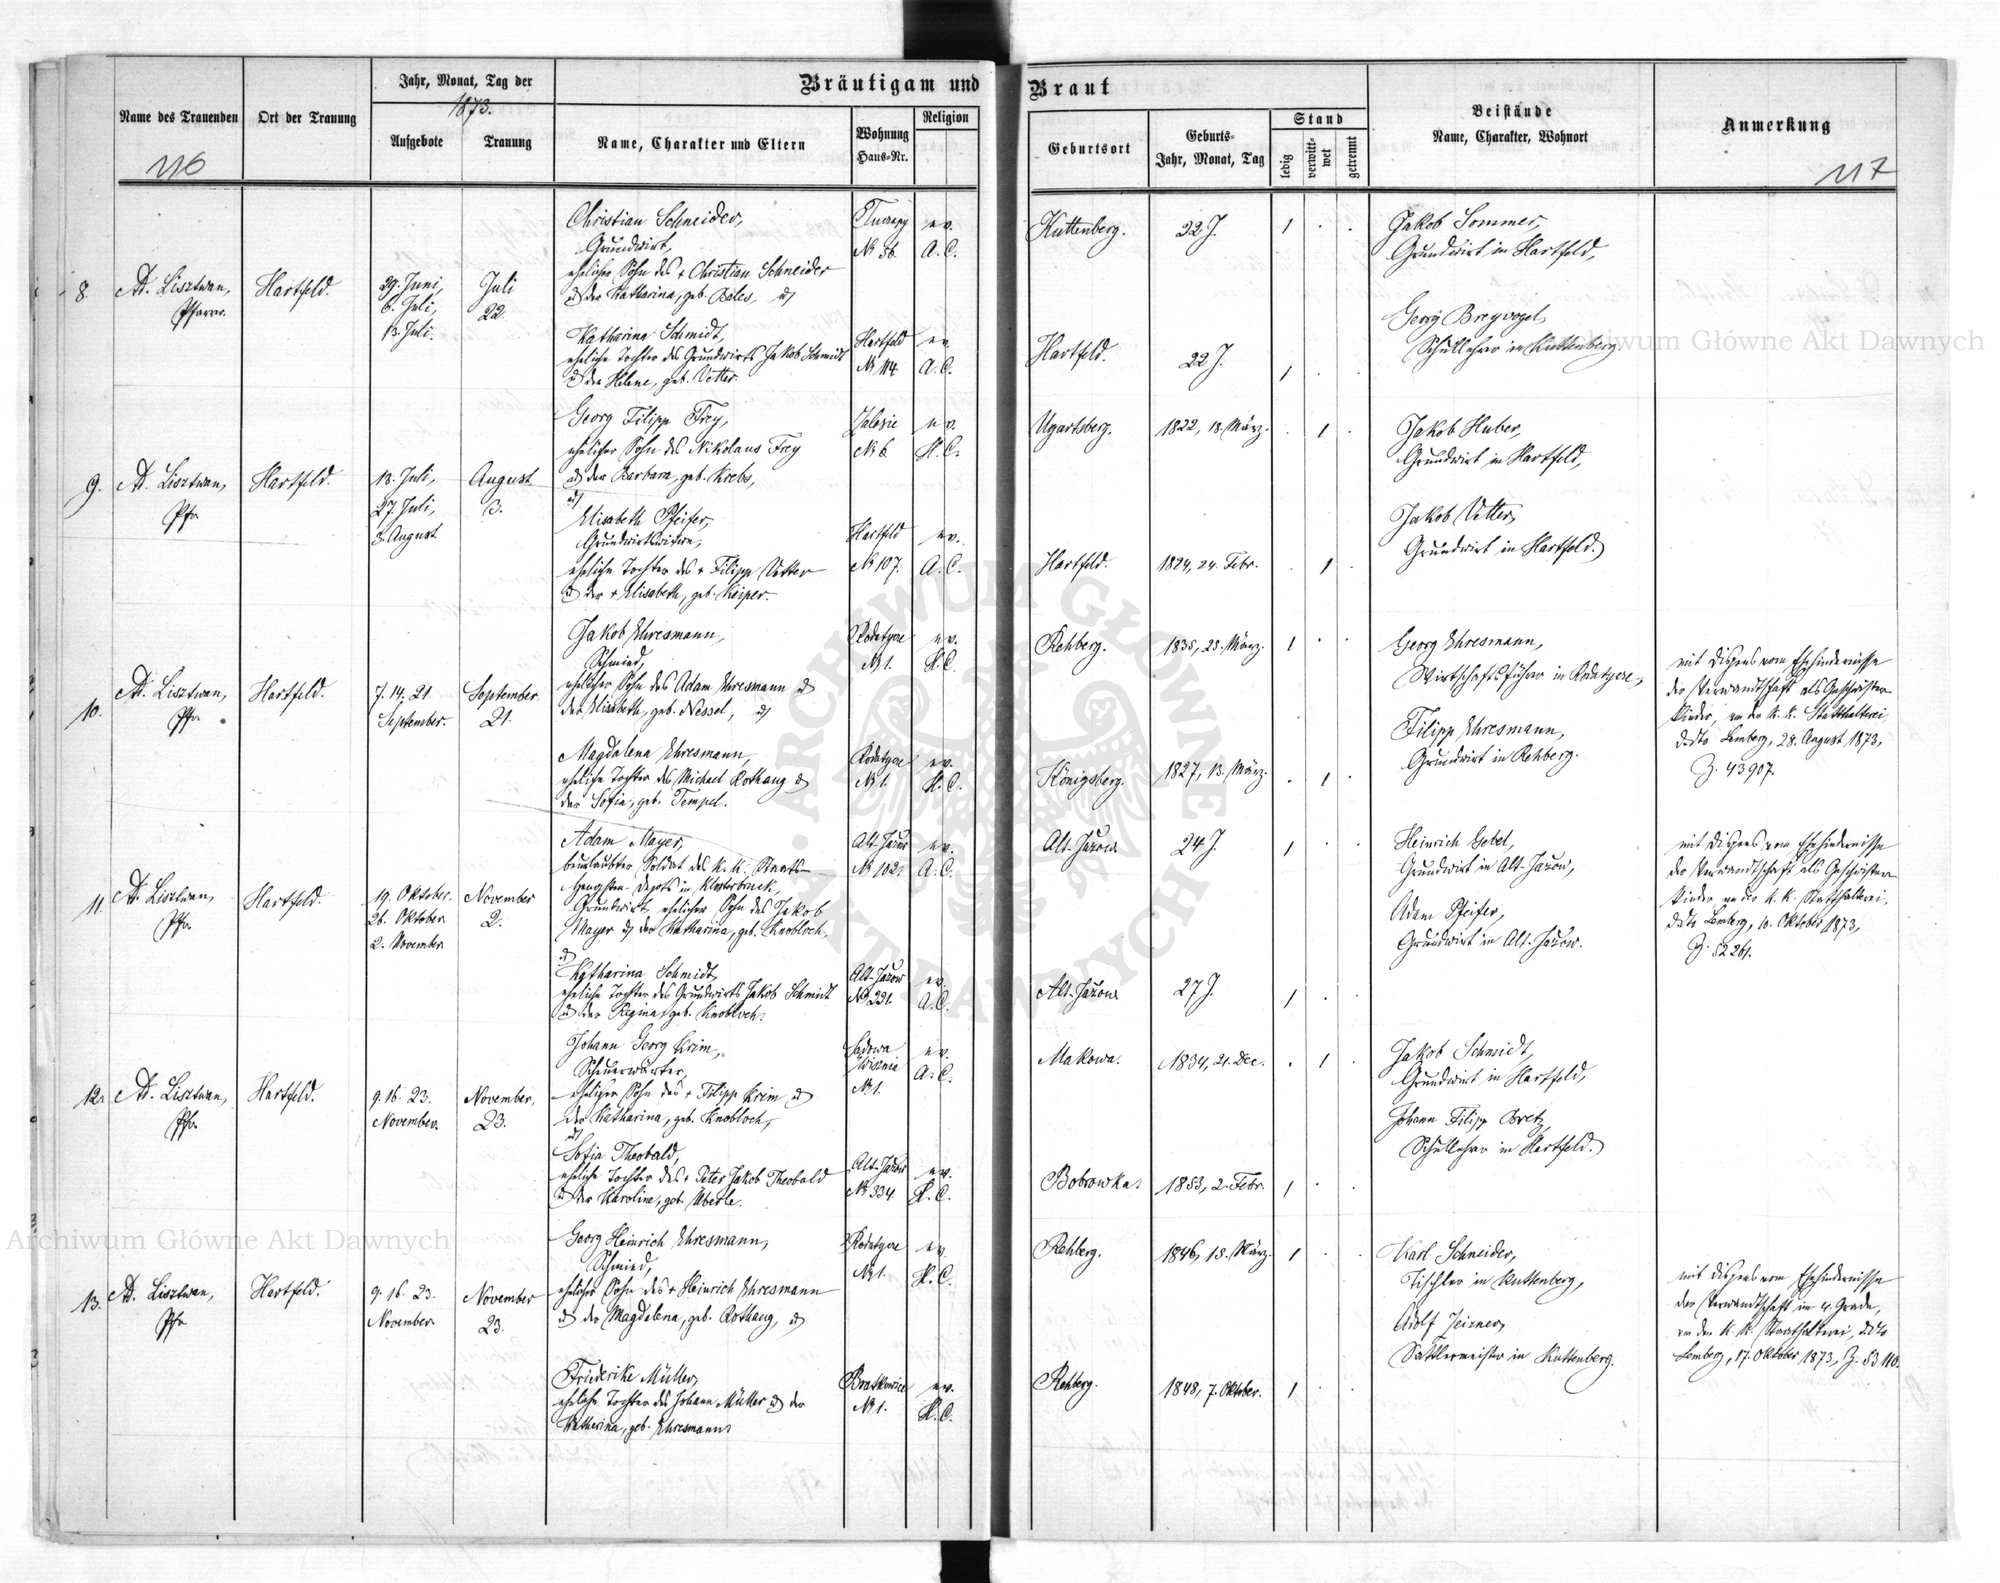 Bräutigam und Braut
Name des Trauenden
Ort der Trauung
Jahr, Monat, Tag der
1873.
Aufgebote
Trauung
Name, Charakter und Eltern
Wohnung
Haus-Nr.
Religion
Geburtsort
Geburts-
Jahr, Monat, Tag
Stand
ledig
verwitt-
wet
getrennt
Beistände
Name, Charakter, Wohnort
Anmerkung
116
117
8.
Ad. Lisztwan,
Pfarrer.
Hartfeld.
29. Juni,
6. Juli,
13. Juli.
Juli
22.
Christian Schneider,
Grundwirt,
ehelicher Sohn des + Christian Schneider
u der Katharina, geb. Bales, u
Nr 56.
ev.
A. C.
Kuttenberg.
22 J.
1
Katharina Schmidt,
eheliche Tochter des Grundwirts Jakob Schmidt
u der Helene, geb. Vetter.
Hartfeld
Nr 114.
ev.
A. C.
Hartfeld.
22 J.
1
Jakob Sommer,
Grundwirt in Hartfeld,
Georg Breyvogel,
Schullehrer in Kuttenberg.
9.
Ad. Lisztwan,
Pfr.
Hartfeld.
13. Juli,
27. Juli,
3. August
August
3.
Georg Filipp Frey,
ehelicher Sohn des Nikolaus Frey
u der Barbara, geb. Krebs,
u
Zalesie
Nr 6.
ev.
H. C.
Ugartsberg.
1822, 18. März.
1
Elisabeth Pfeifer,
Grundwirtswitwe,
eheliche Tochter des + Filipp Vetter
u der + Elisabeth, geb. Keiper.
Hartfeld
Nr 107.
ev.
A. C.
Hartfeld.
1824, 24. Febr.
1
Jakob Huber,
Grundwirt in Hartfeld,
Jakob Vetter,
Grundwirt in Hartfeld.
10.
Ad. Lisztwan,
Pfr.
Hartfeld.
7. 14. 21.
September.
September
21.
Jakob Ehresmann,
Schmied,
ehelicher Sohn des Adam Ehresmann u
der Elisabeth, geb. Nessel, u
Rodatycze
Nr 1.
ev.
H. C.
Rehberg.
1835, 25. März.
1
Magdalena Ehresmann,
eheliche Tochter des Michael Rothaug u
der Sofia, geb. Tempel.
Rodatycze
Nr 1.
ev.
H. C.
Königsberg.
1827, 13. März.
1
Georg Ehresmann,
Wirtschaftsführer in Rodatycze,
Filipp Ehresmann,
Grundwirt in Rehberg.
mit Dispens vom Ehehindernisse
der Verwandtschaft als Geschwister-
kinder, von der k. k. Statthalterei,
ddto Lemberg, 28. August 1873,
Z. 43907.
11.
Ad. Lisztwan,
Pfr.
Hartfeld.
19. Oktober,
26. Oktober
2. November
November
2.
Adam Mayer,
beurlaubter Soldat des k. k. Staats-
Hengsten-Depots in Klosterbruck,
Grundwirt, ehelicher Sohn des Jakob
Mayer u der Katharina, geb. Knobloch,
u
Alt-Jazow
Nr 102.
ev.
A. C.
Alt-Jazow
24 J.
1
Katharina Schmidt,
eheliche Tochter des Grundwirts Jakob Schmidt
u der Regina, geb. Knobloch.
Alt-Jazow
Nr 291.
ev.
A. C.
Alt-Jazow
27 J.
1
Heinrich Gebel,
Grundwirt in Alt-Jazow,
Adam Pfeifer,
Grundwirt in Alt-Jazow.
mit Dispens vom Ehehindernisse
der Verwandtschaft als Geschwister-
kinder von der k. k. Statthalterei,
ddto Lemberg, 10. Oktober 1873,
Z. 52261.
12.
Ad. Lisztwan,
Pfr.
Hartfeld.
9. 16. 23.
November.
November,
23.
Johann Georg Krim,
Scheuerwärter,
ehelicher Sohn des + Filipp Krim u
der Katharina, geb. Knobloch,
u
Sadowa
Wisznia
Nr 1.
ev.
A. C.
Makowa.
1834, 21. Dec.
1
Sofia Theobald,
eheliche Tochter des + Peter Jakob Theobald
u der Karoline, geb. Überle.
Alt-Jazow
Nr 334.
ev.
H. C.
Bobrowka.
1853, 2. Febr.
1
Jakob Schmidt,
Grundwirt in Hartfeld,
Johann Filipp Bretz,
Schullehrer in Hartfeld.
13.
Ad. Lisztwan,
Pfr.
Hartfeld.
9. 16. 23.
November
November
23.
Georg Heinrich Ehresmann,
Schmied,
ehelicher Sohn des + Heinrich Ehresmann
u der Magdalena, geb. Rothaug, u
Rodatycze
Nr 1.
ev.
H. C.
Rehberg.
1846, 18. März.
1
Friederike Müller,
eheliche Tochter des Johann Müller u der
Katharina, geb. Ehresmann
Bratkowice
Nr 1.
ev.
H. C.
Rehberg.
1848, 7. Oktober.
1
Karl Schneider,
Tischler in Kuttenberg,
Adolf Zeizner,
Sattlermeister in Kuttenberg.
mit Dispens vom Ehehindernisse
der Verwandtschaft im 4. Grade,
von der k. k. Statthalterei, ddto
Lemberg, 17. Oktober 1873, Z. 53110.
Archiwum Główne Akt Dawnych
Archiwum Główne Akt Dawnych
ARCHIWUM GŁÓWNE AKT DAWNYCH